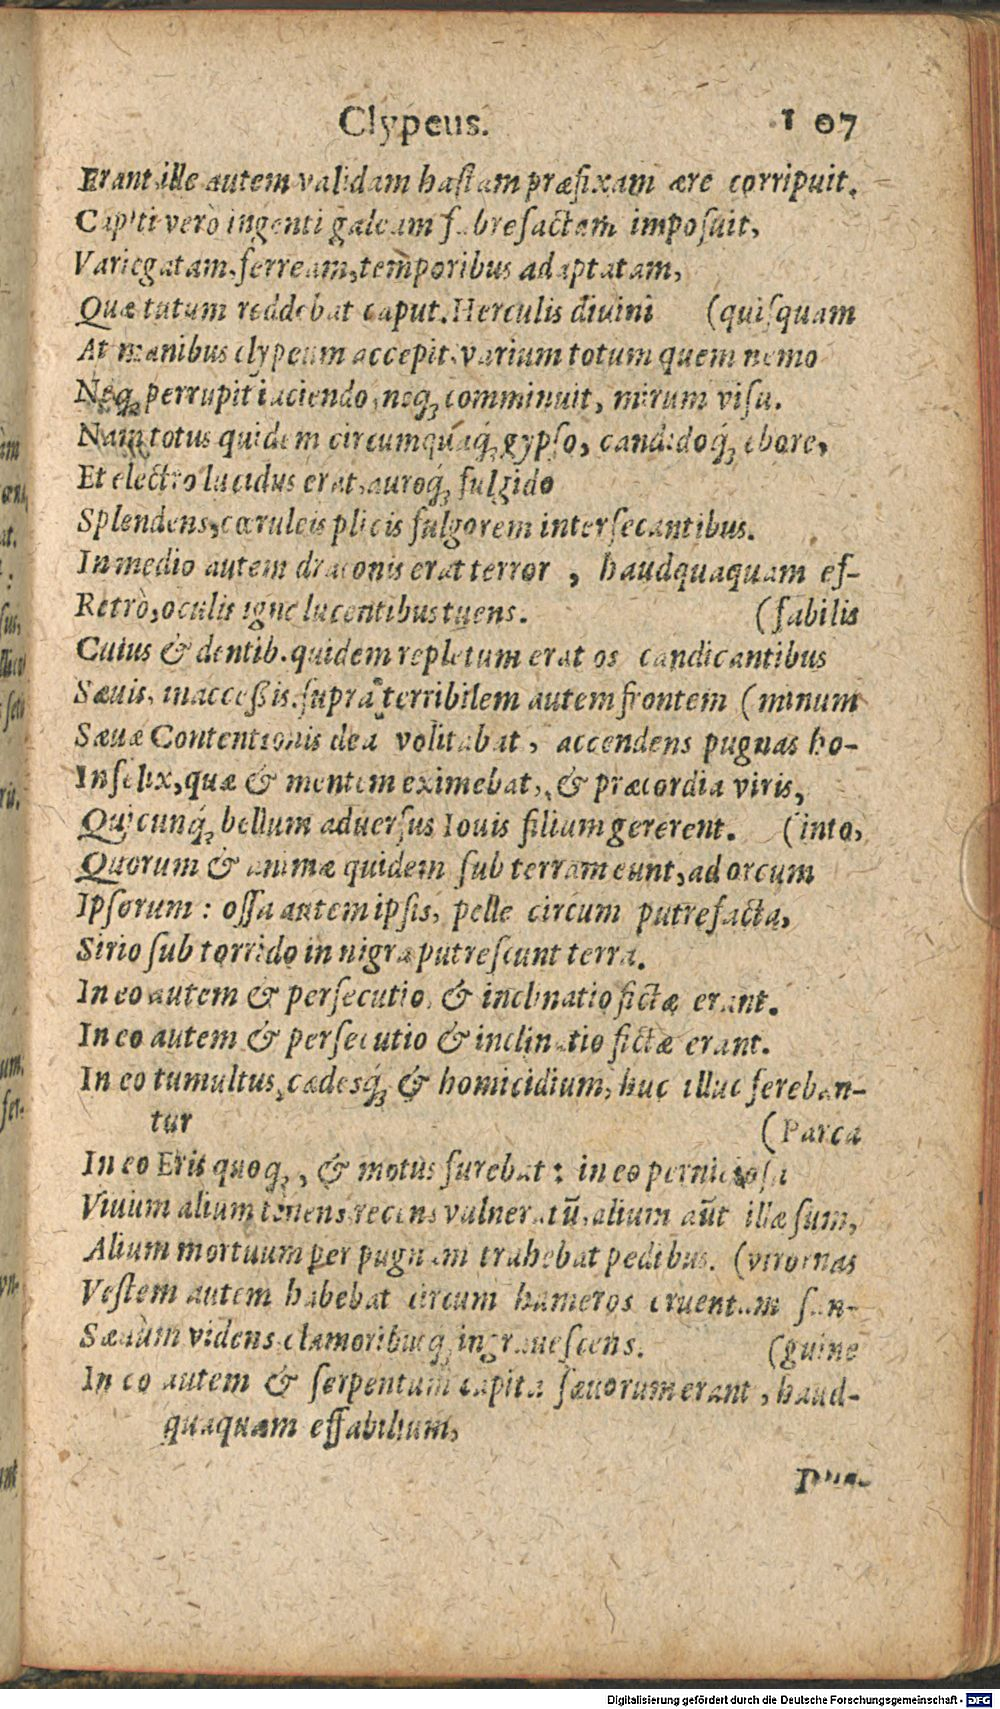 Clypeus. 107
Erant, ille autem validam haſtam præfixam ære corripuit.
Capiti verò ingenti galeam fabrefactam impoſuit,
Variegatam, ferream, temporibus adaptatam,
Quæ tutum reddebat caput. Herculis diuini (quiſquam
At manibus clypeum accepit. varium totum quem nemo
Neq; perrupit iaciendo, neq; comminuit, mirum viſu.
Nam totus quidem circumquaq; gypſo, candidoq; ebore,
Et electro lucidus erat, auroq; fulgido
Splendens, cœruleis plicis fulgorem interſecantibus.
In medio autem draconis erat terror, haudquaquam ef-
Retrò, oculis igne lucentibus tuens. (fabilis
Cuius & dentib. quidem repletum erat os candicantibus
Sæuis, inacceßis. ſupra terribilem autem frontem (minum
Sæuæ Contentionis dea volitabat, accendens pugnas ho-
Infelix, quæ & mentem eximebat, & præcordia viris,
Quicunq; bellum aduerſus Iouis filium gererent. (into,
Quorum & animæ quidem ſub terram eunt, ad orcum
Ipſorum: oſſa autem ipſis, pelle circum putrefacta,
Sirio ſub torrido in nigra putreſcunt terra.
In eo autem & perſecutio, & inclinatio fictæ erant.
In eo autem & perſecutio & inclinatio fictæ erant.
In eo tumultus, cædesq; & homicidium, huc illuc fereban-
tur (Parca
In eo Eris quoq;, & motus furebat: in eo pernicioſa
Viuum alium tenens recens vulneratū, alium aūt illæſum,
Alium mortuum per pugnam trahebat pedibus. (virornas
Veſtem autem habebat circum humeros cruentam ſan-
Sæuùm videns clamoribusq; ingraueſcens. (guine
In eo autem & ſerpentum capita ſæuorum erant, haud-
quaquam effabilium,
Digitalisierung gefördert durch die Deutsche Forschungsgemeinschaft - DFG